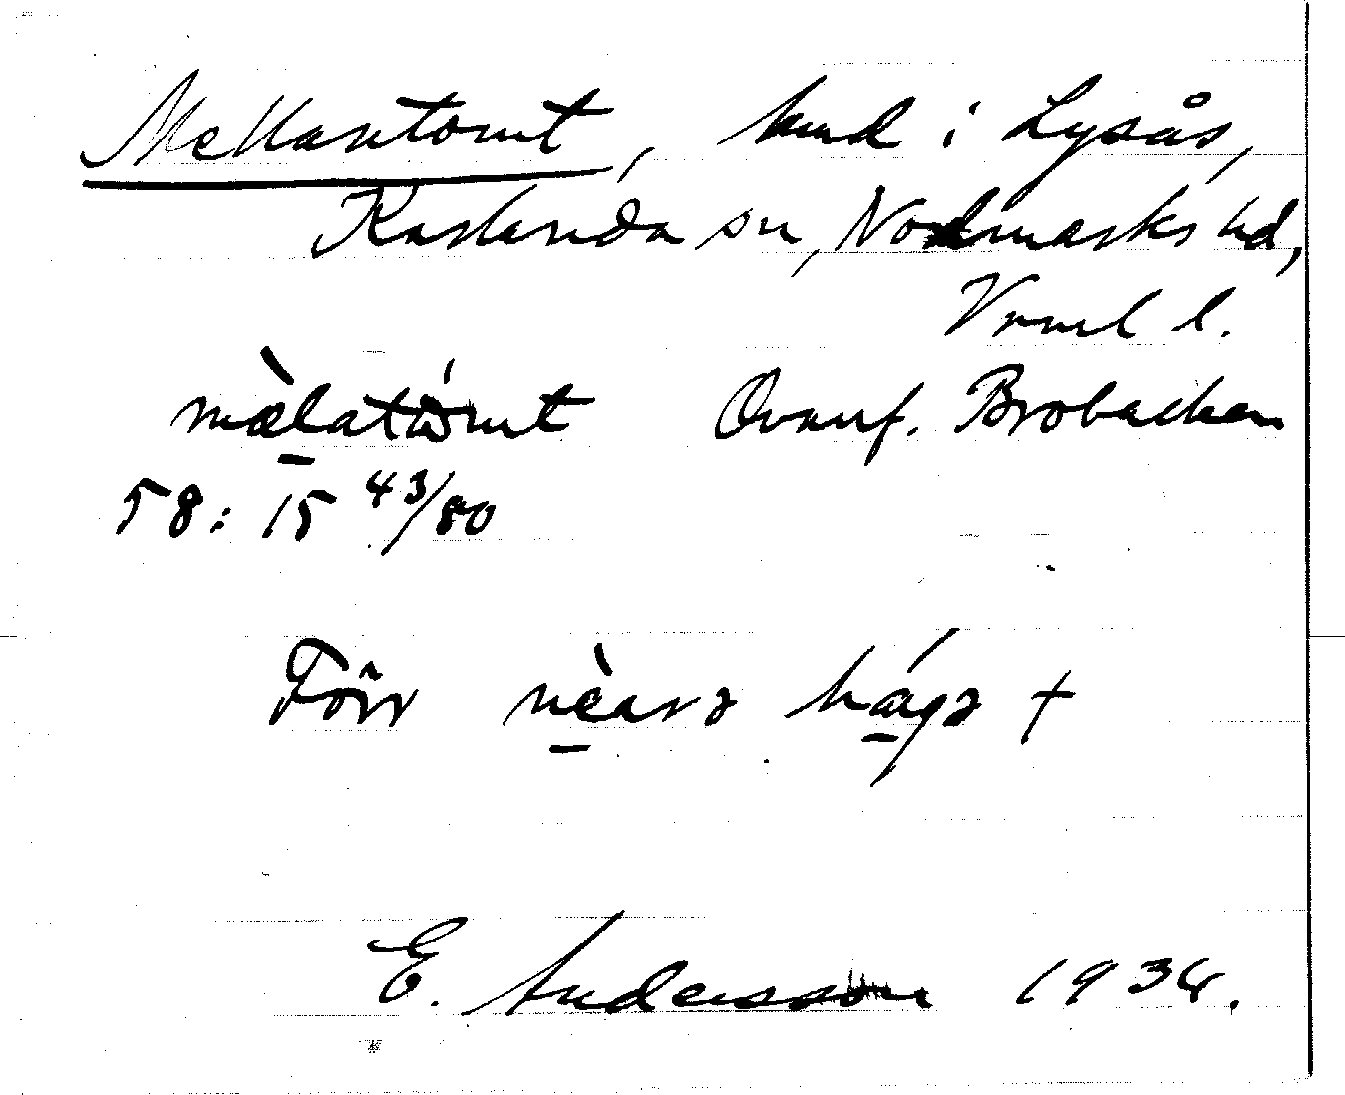 Mellantomt, hmd i Lysås,
Karlanda sn, Nordmarks hd,
Vrml l.
mὰlatòmt Ovanf. Brobacken
58:15 43/80
Förr nèarə hágə +
E. Andersson 1934.